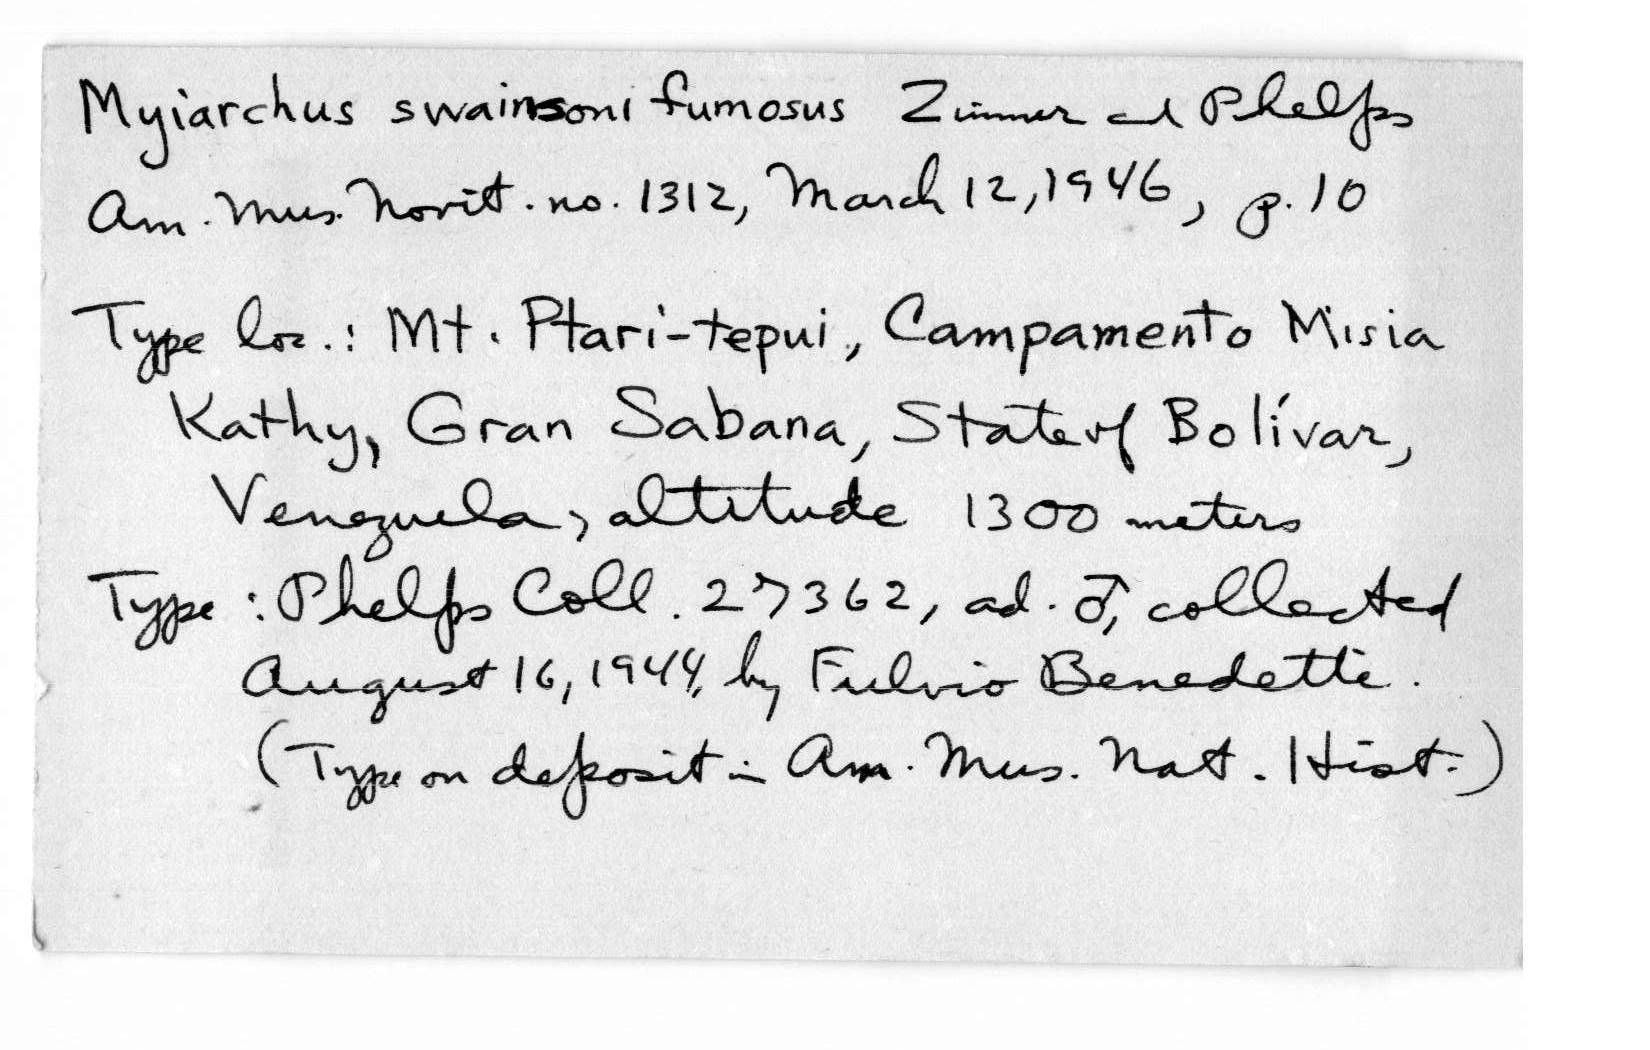 Myiarchus swainsoni fumosus Zimmer and Phelps
Am. Mus. Novit. no. 1312, March 12, 1946, p. 10
Type loc.: Mt. Ptari-tepui, Campamento Misia
Kathy, Gran Sabana, State of Bolívar,
Venezuela, altitude 1300 meters
Type: Phelps Coll. 27362, ad. ♂, collected
August 16, 1944, by Fulvio Benedetti.
(Type on deposit in Am. Mus. Nat. Hist.)